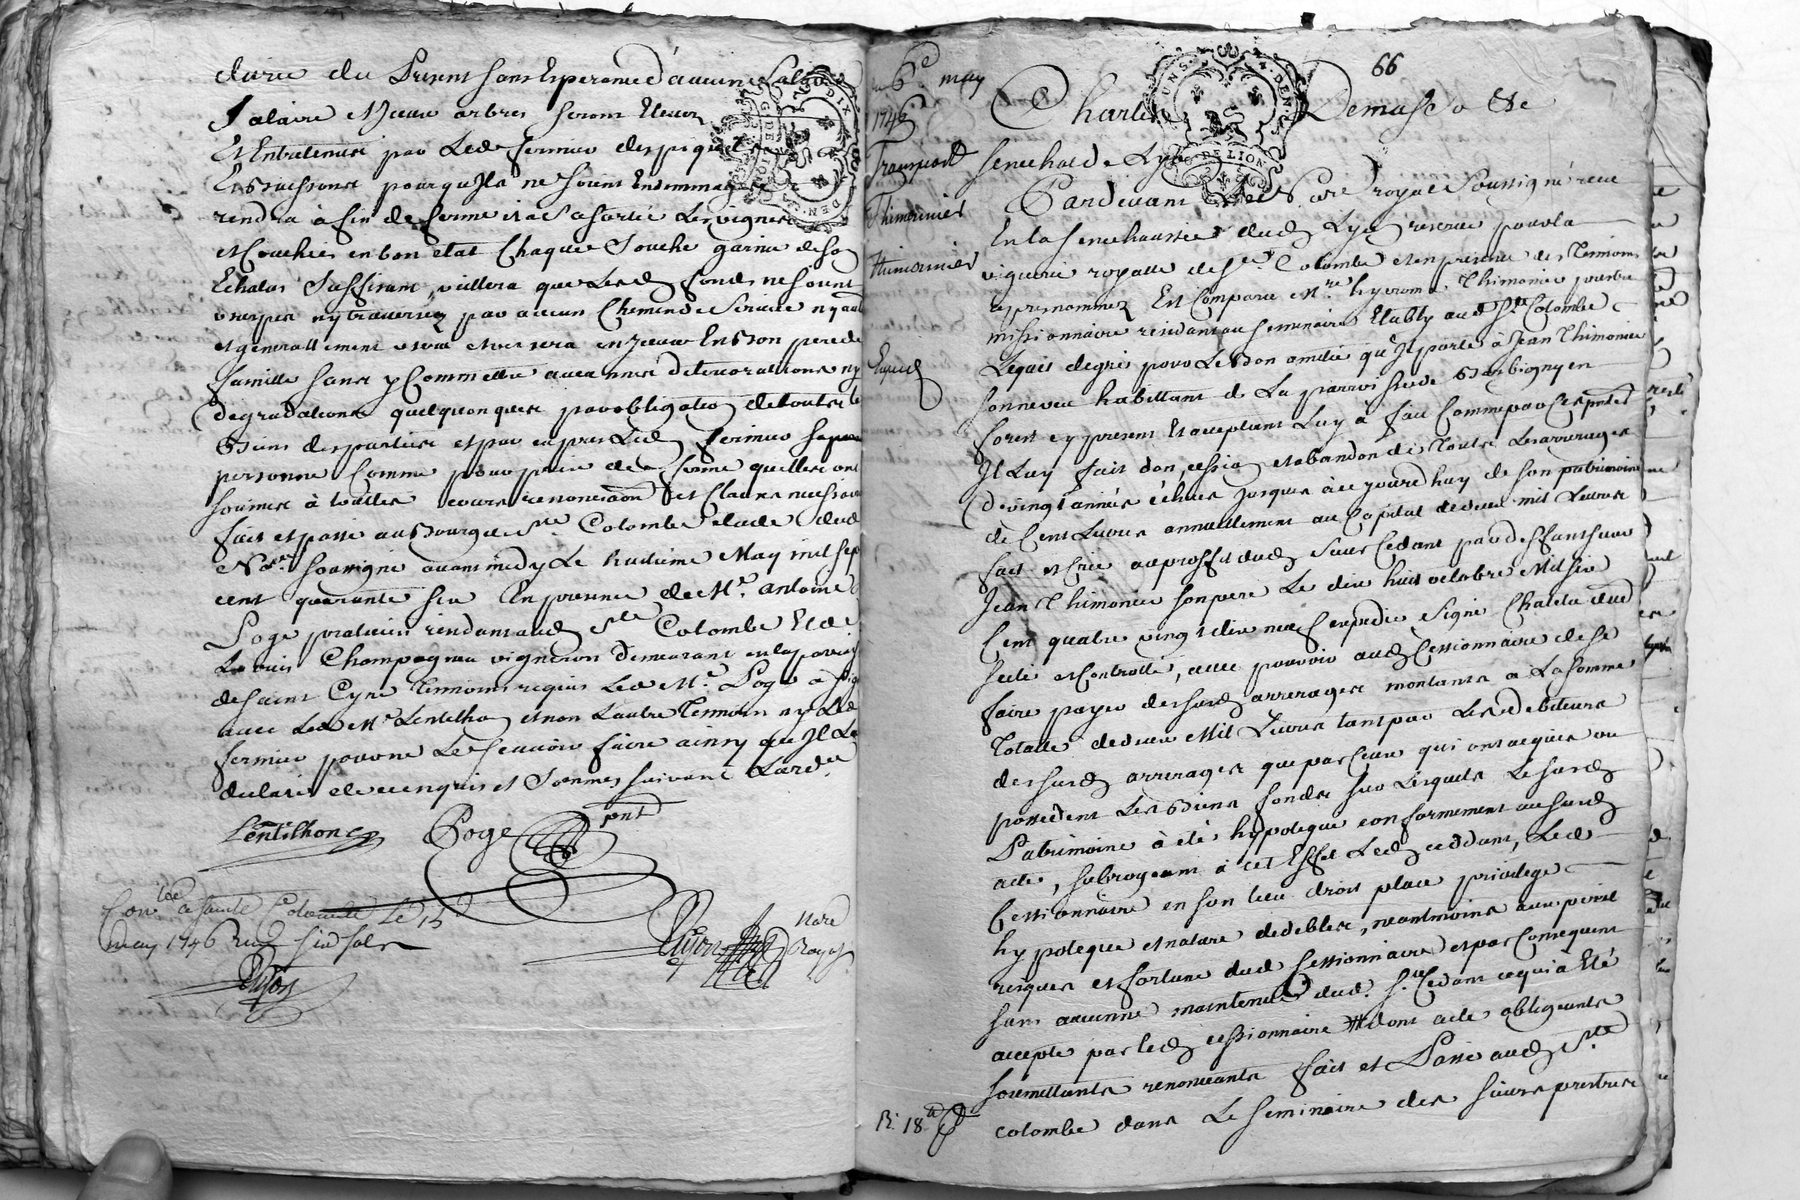 duire du Present sans Esperance d'aucune
salaire Nouveaux arbres seront Elevez
Et Entretenus par Led. fermier des piquets
En Buissonés pour qu'Ils ne soient Endommagés
rendra à fin de ferme et a sa sortie Les vignes
et Couchées en bon état Chaque Souche garnie de son
Echalas suffisant, veillera que Lesd. fonds ne soient
usurpés ny traversez par aucun Chemin de Servitude ny autre
et generallement usera en Bon pere de
famille sans y Commettre aucunnes deteriorations ny
degradations quelquonques par obligation de toutes les
Biens des parties et par exprès Led. fermier sa propre
personne Comme pour prix de ferme qu'elles ont
soumise à toutes cours renonciaon et Clauses necessaires
fait et passé au Bourg de Ste Colombe Etude dud.
No.re soussigné avant midy Le huitième May mil sept
cent quarante six En presence de Mr. Antoine
Poge praticien residant aud. Ste Colombe Et de
Louis Champagneu vigneron demeurant en la parroisse
de Saint Cyre Temoins requis Led. Mr. Poge a signé
avec Led. Mr. Lentilhon et non L'autre Temoin ny Led.
fermier pour ne Le sçavoir faire ainsy qu'Il L'a
déclaré de ce enquis et Sommés suivant L'ord.ce
Lentilhon Poge pnt
Con.lé a sainte Colombe Le 15
may 1746 Reçu six sols
No.re
Royal
66
6e may
1746
Transport
Thimonier
Thimonier
Exped.
Charles Demasso &e
senechal de Lyo
Pardevant Le No.re royal Soussigné reçu
En la senechaussée dud. Lyo reservé pour la
viguerie royalle de Ste Colombe et en presence des Temoins
apres nommez Est Comparu M.re hyerome Thimonier prestre
missionnaire residant au seminaire Etably aud. Ste Colombe
Lequel de gré pour Le Bon amitié qu'Il porte à Jean Thimonier
son neveu habittant de La parroisse de Barbigny en
forest cy present Et acceptant Luy à fait Comme par Ces presentes
Il Luy fait don, cession et abandon de Toutes Les arrerages
de vingt années échues jusques à ce jourd'huy de son patrimoine
de Cent Livres annuellement au Capital de deux mil Livres
fait et Créé au proffit dud. sieur Cedant par deffunt sieur
Jean Thimonier son pere Le dix huit octobre Mil six
Cent quatre vingt dix neuf Expedié Signé Chalétu dud.
scellé et Controllé, avec pouvoir aud. Cessionnaire de se
faire payer desd. arrerages montants a La somme
Totalle de deux Mil Livres tant par Les debiteurs
desd. arrerages que par Ceux qui ont acquis ou
possedent Les Biens fonds sur Lesquels Le susd.
Patrimoine à été hypotequé conformement au susd.
acte, subrogeant à cet Effet Led. ceddant, Led.
Cessionnaire en son lieu droit place privilege
hypoteque et nature de debtes, neantmoins aux peril
risques et fortune dud. Cessionnaire et par Consequent
sans aucunne maintenue dud. sr. Cedant ce qui à Eté
accepté par led. cessionnaire # dont acte obligeants
soumettants renonceants fait et Passé aud. Ste
R. 18d
colombe dans Le seminaire des sieurs prestres